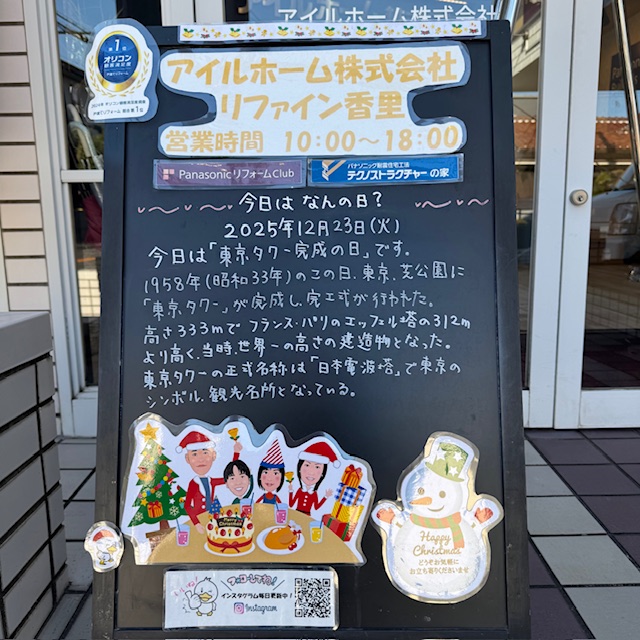 アイルホーム株式会社
第1位
オリコン
顧客満足度
アイルホーム株式会社
リファイン香里
営業時間 10:00〜18:00
Panasonicリフォーム Club
パナソニック耐震住宅工法
テクノストラクチャーの家
今日は なんの日?
2025年12月23日(火)
今日は「東京タワー完成の日」です。
1958年(昭和33年)のこの日、東京、芝公園に
「東京タワー」が完成し、完工式が行われた。
高さ333mで フランス・パリのエッフェル塔の312m
より高く、当時、世界一の高さの建造物となった。
東京タワーの正式名称は「日本電波塔」で東京の
シンボル、観光名所となっている。
Merry Christmas
Happy
Christmas
どうぞお気軽に
お立ち寄りくださいませ
フォローしてね!
インスタグラム毎日更新中!
Instagram